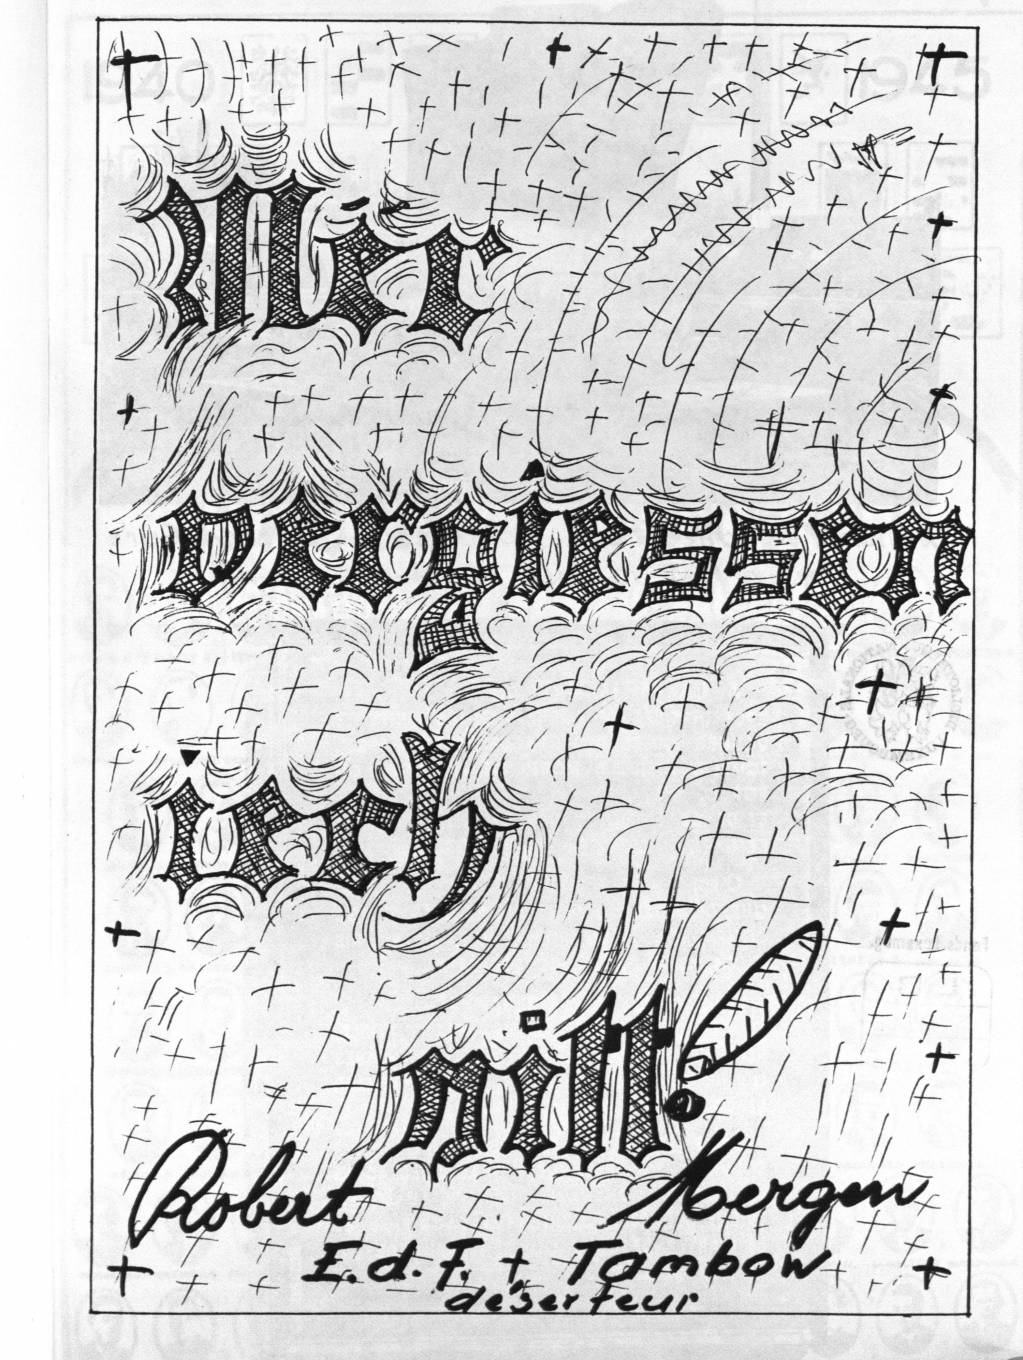 Mer
vergiessen
iech
nitt!
Robert Mergen
E.d.F. + Tambow
déserteur